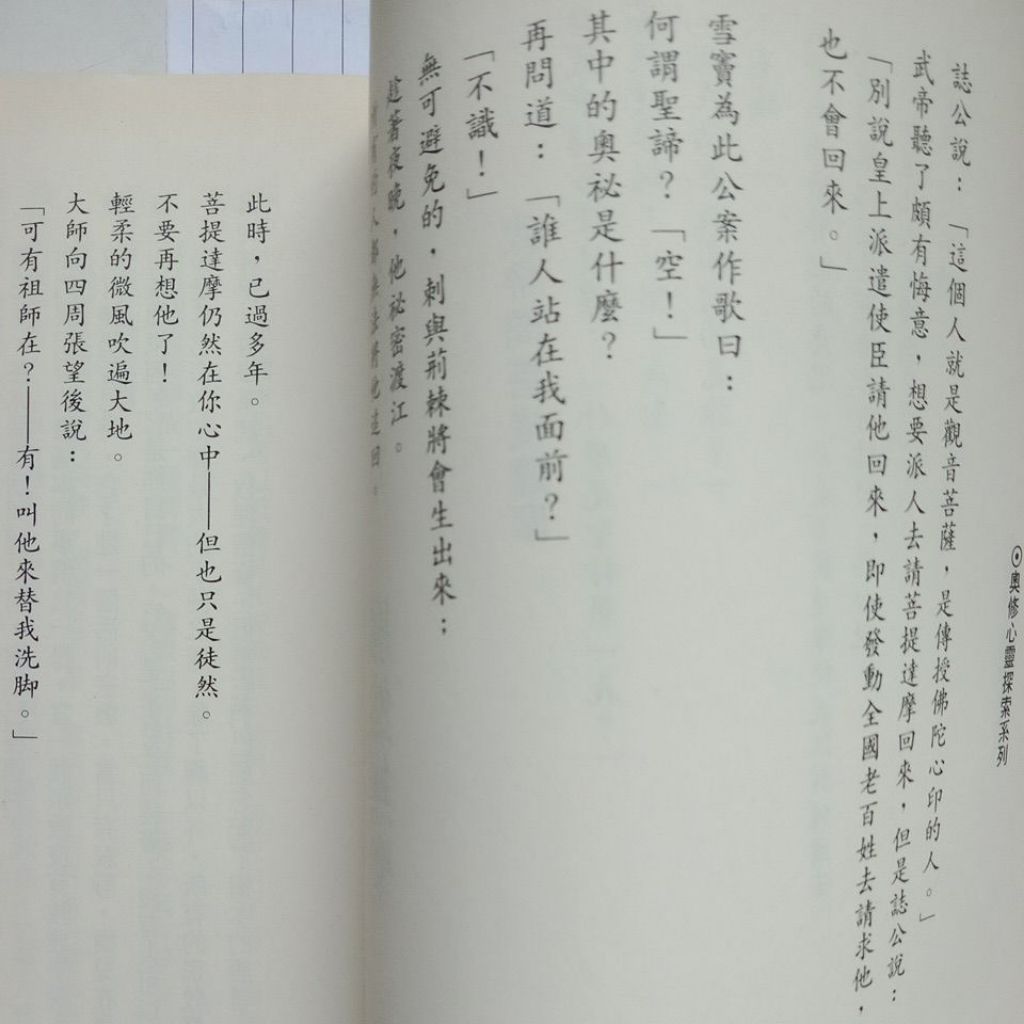 ⊙奧修心靈探索系列
誌公說：「這個人就是觀音菩薩，是傳授佛陀心印的人。」
武帝聽了頗有悔意，想要派人去請菩提達摩回來，但是誌公說：
「別說皇上派遣使臣請他回來，即使發動全國老百姓去請求他，
也不會回來。」
雪竇為此公案作歌曰：
何謂聖諦？「空！」
其中的奧祕是什麼？
再問道：「誰人站在我面前？」
「不識！」
無可避免的，刺與荊棘將會生出來；
趁著夜晚，他祕密渡江。
此時，已過多年。
菩提達摩仍然在你心中——但也只是徒然。
不要再想他了！
輕柔的微風吹遍大地。
大師向四周張望後說：
「可有祖師在？——有！叫他來替我洗脚。」